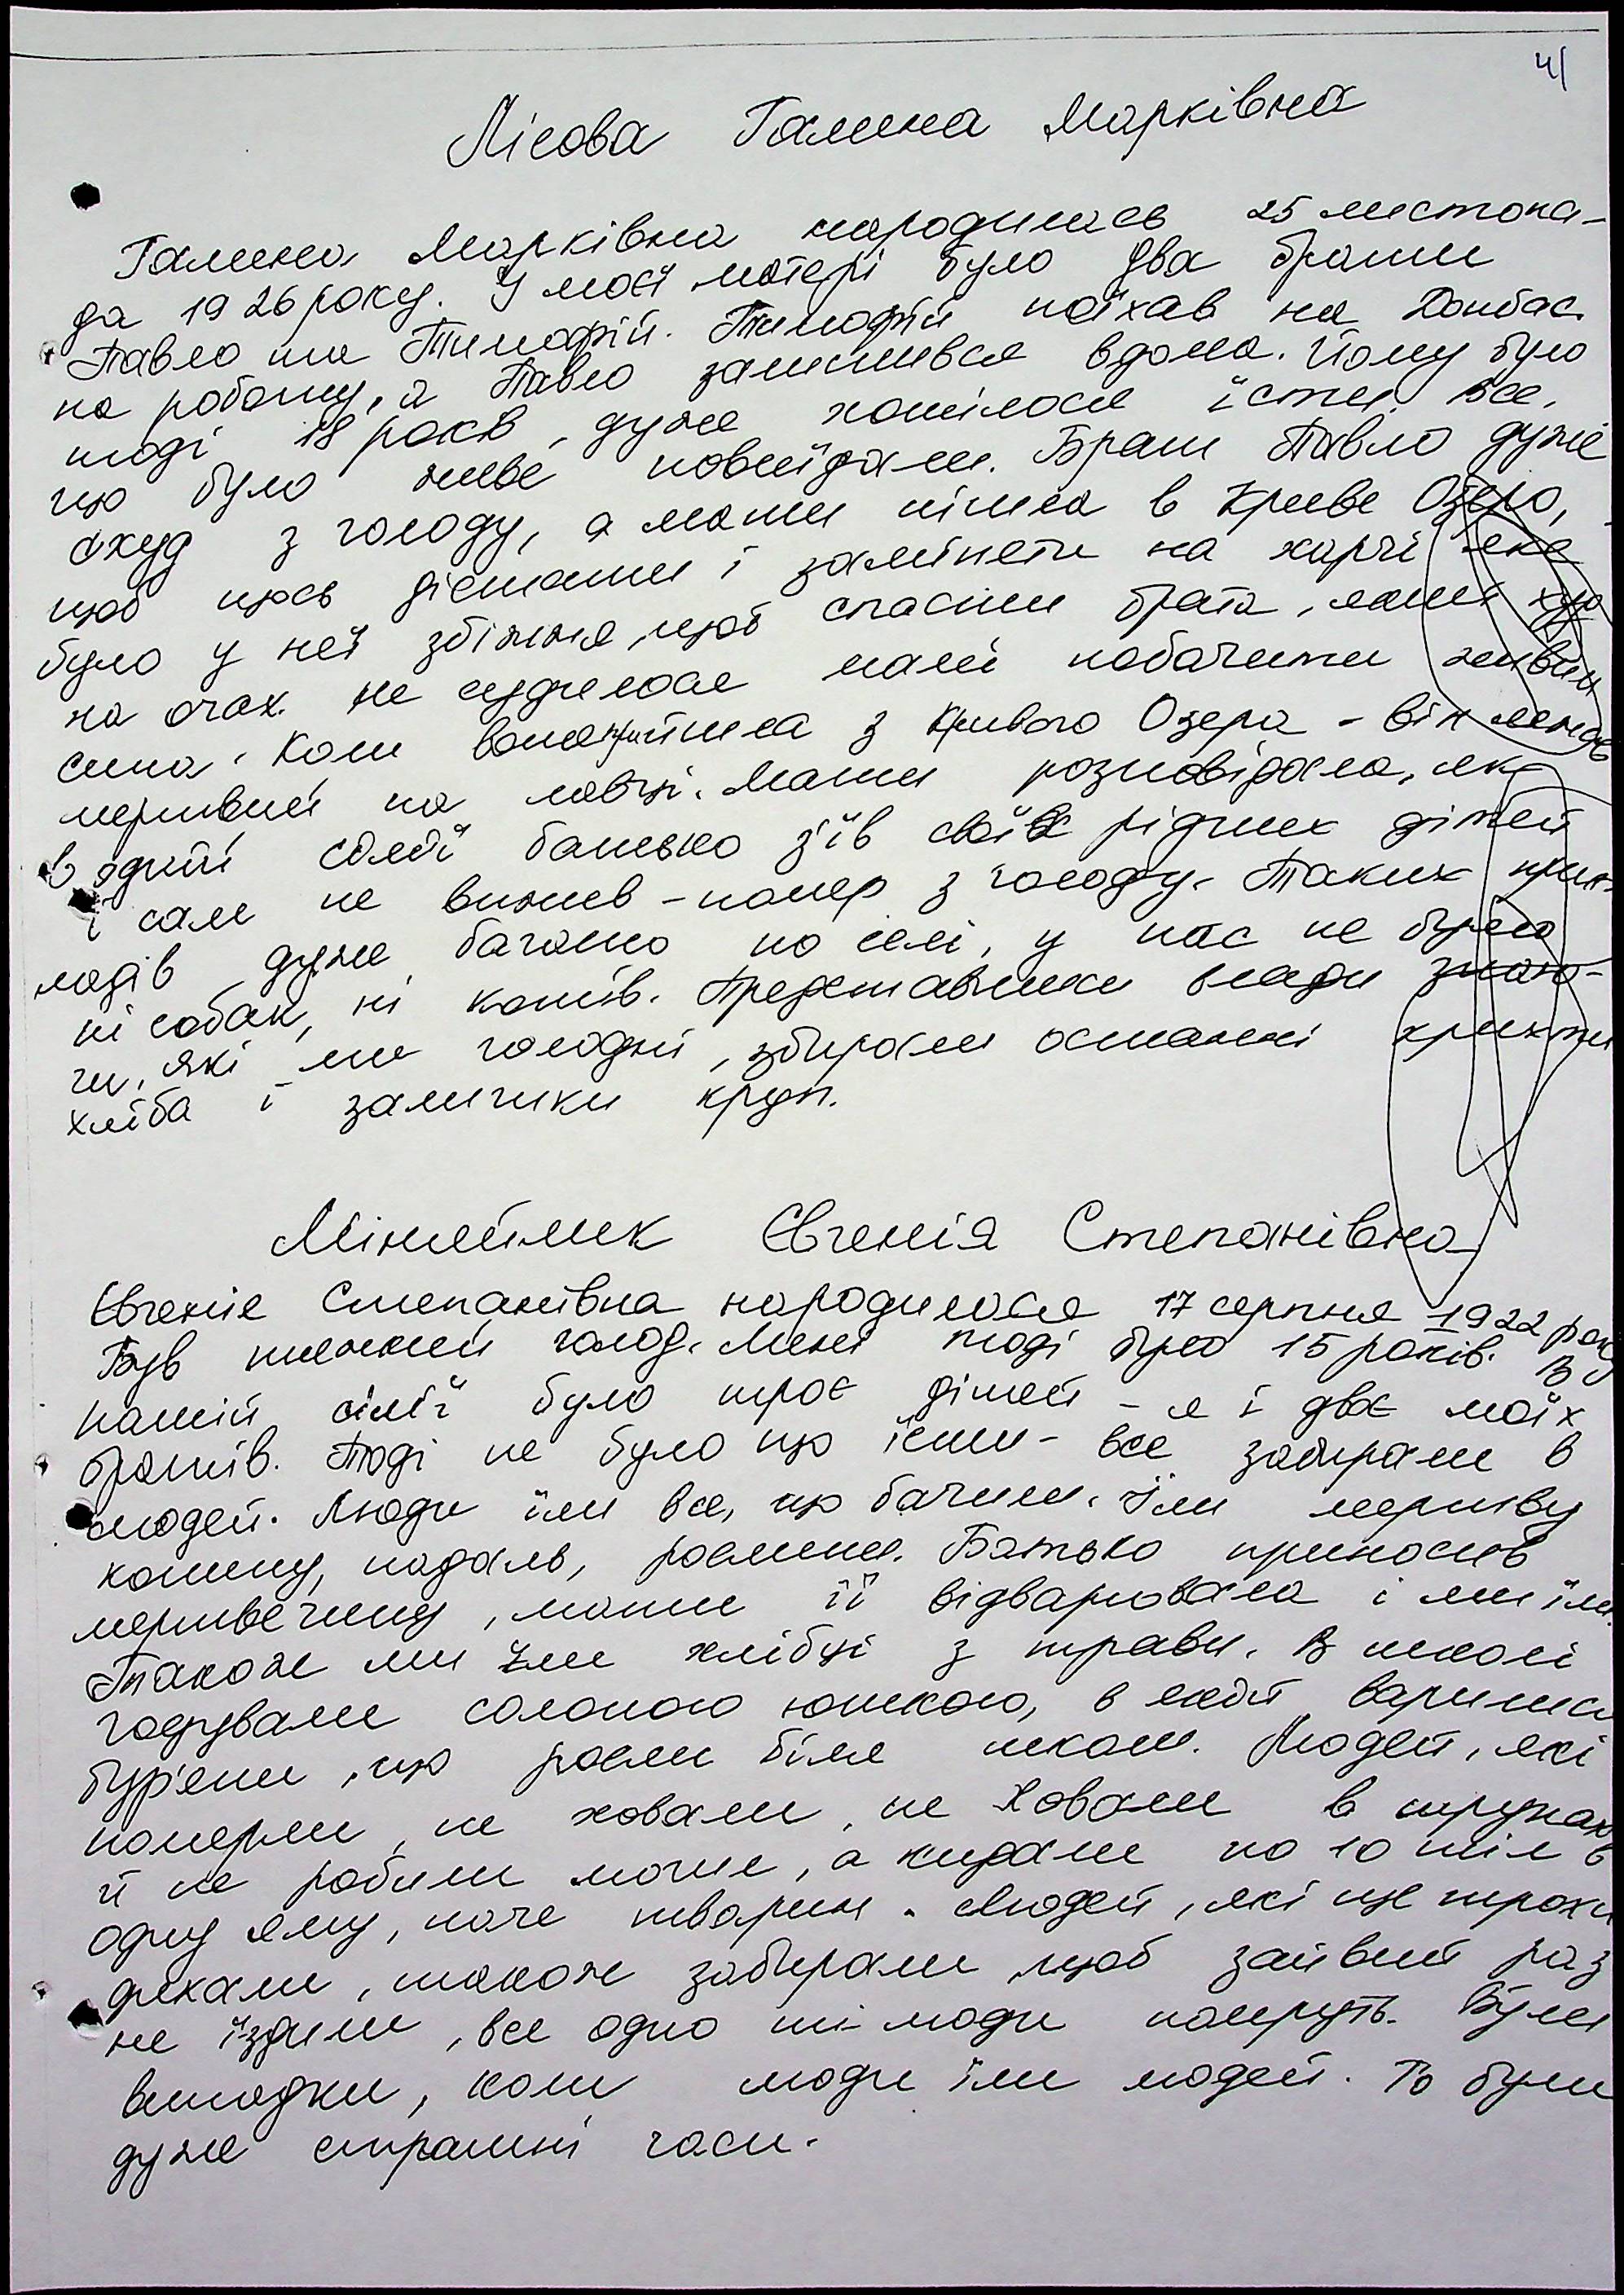 41
Лісова Галина Марківна
Галина Марківна народилась 25 листопа-
да 1926 року. У моєї матері було два брати
Павло та Тимофій. Тимофій поїхав на Донбас
на роботу, а Павло залишився вдома. Йому було
тоді 18 років, дуже хотілося їсти, все,
що було живе повиїдали. Брат Павло дуже
охуд з голоду, а мати пішла в Криве Озеро,
щоб щось дістати і заміняти на харчі яке
було у неї збіжжя, щоб спасти брата,
на очах. Не судилося мамі побачити живим
сина. Коли вона прийшла з Кривого Озера - він лежав
мертвий на лавці. Мати розповідала, як
в одній сім'ї батько з'їв своїх рідних дітей
і сам не вижив - помер з голоду. Таких прик-
ладів дуже багато по селі, у нас не було
ні собак, ні котів. Представники влади знаю-
чи, які ми голодні, збирали останні крихти
хліба і залишки круп.
Євгенія Степанівна
Євгенія Степанівна народилася 17 серпня 1922 року
Був тяжкий голод. Мені тоді було 15 років. В
нашій сім'ї було троє дітей - я і двоє моїх
братів. Тоді не було що їсти - все забирали в
людей. Люди їли все, що бачили. Їли мертву
конину, падаль, рослини. Батько приносив
мертвечину, мати її відварювала і ми їли.
Також ми їли хлібці з трави. В школі
годували солоною юшкою, в якій варились
бур'яни, що росли біля школи. Людей, які
померли, не ховали, не ховали в трунах
й не робили могил, а кидали по 10 тіл в
одну яму, наче тварин. Людей, які ще трохи
дихали, також забирали, щоб зайвий раз
не їздили, все одно ті люди помруть. Були
випадки, коли люди їли людей. То були
дуже страшні часи.